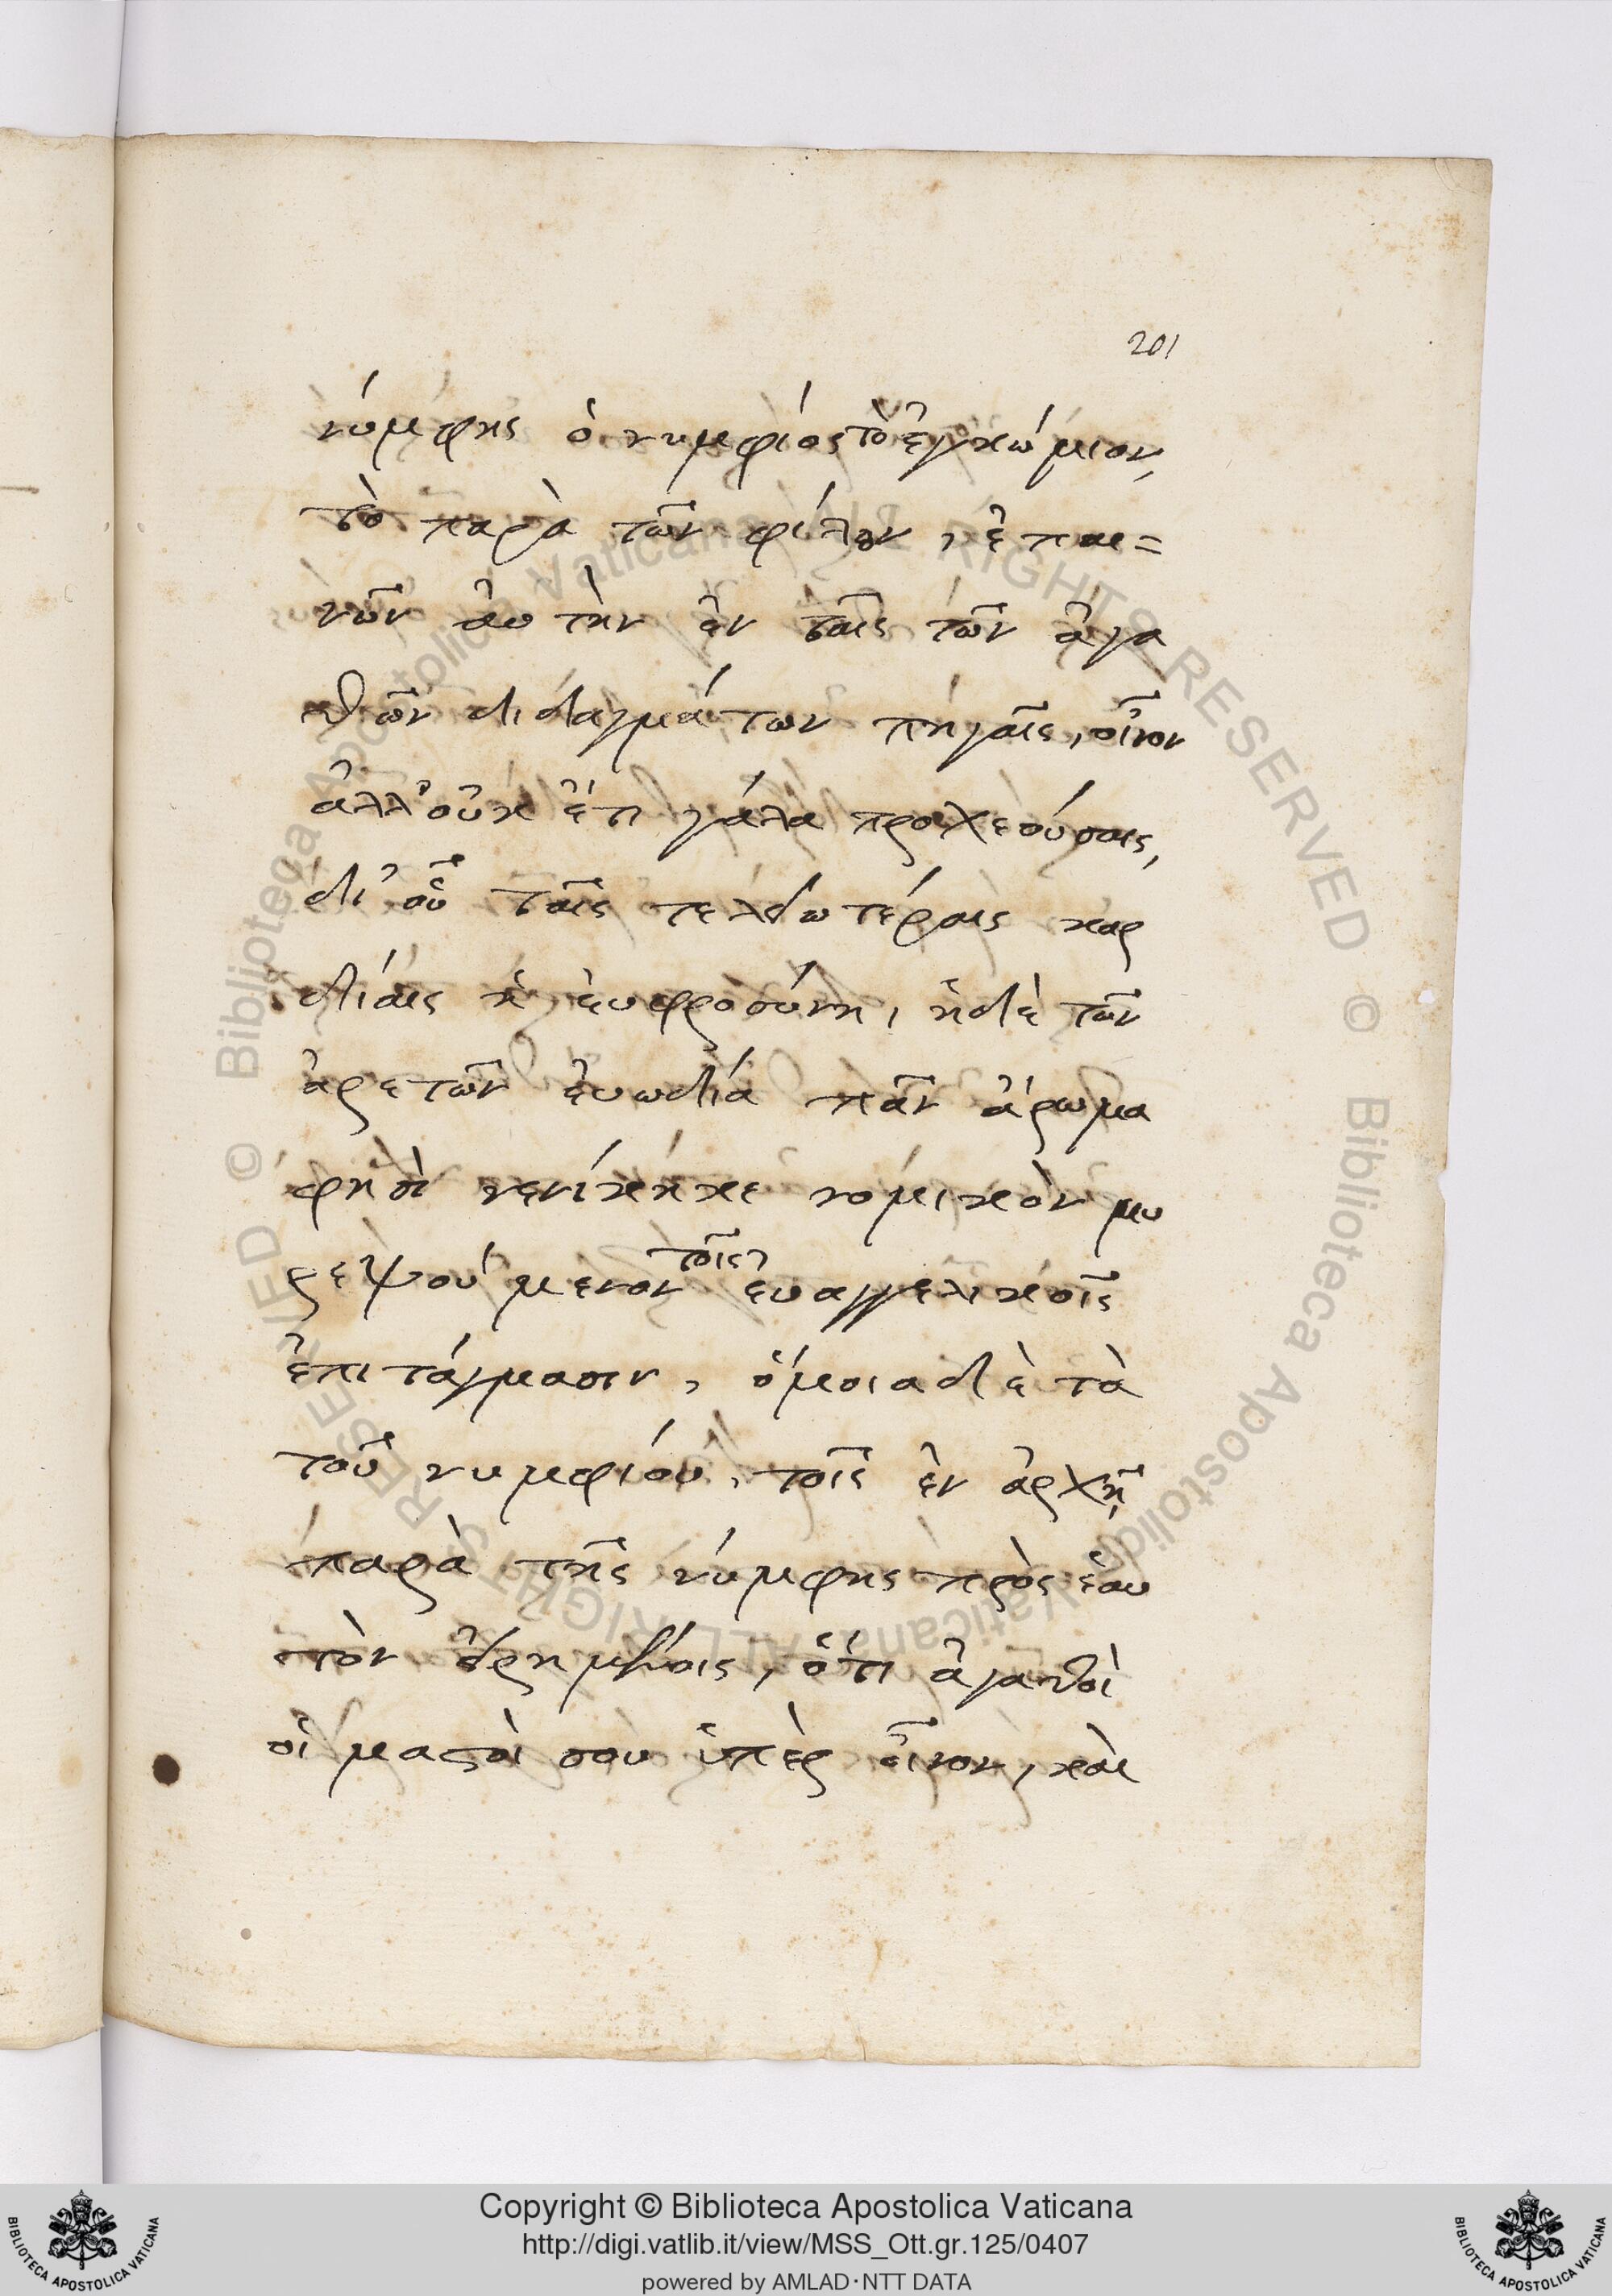 201
νύμφης ὁ νυμφίος τὸ ἐγκώμιον,
τὸ παρὰ τῶν φίλων, ἐπαι=
νῶν ἀυτὴν ἐν ταῖς τῶν ἀγα
θῶν διδαγμάτων πηγαῖς, οἶνον
ἀλλ' οὐκ ἔτι γάλα προχεούσαις,
δι' οὗ ταῖς τελεωτέραις καρ
δίαις ἡ ἐυφροσύνη, ἡ δὲ τῶν
ἀρετῶν ἐυωδία πᾶν ἄρωμα
φησὶ νενίκηκε νομικὸν μυ
ρεψούμενον τοῖς ἐυαγγελικοῖς
ἐπιτάγμασιν, ὅμοια δὲ τὰ
τοῦ νυμφίου, τοῖς ἐν ἀρχῆ
παρὰ τῆς νύμφης πρὸς ἑαυ
τὸν ἐιρημένοις, ὅτι ἀγαθοὶ
οἱ μαστοί σου ὑπὲρ οἶνον, καὶ
© Biblioteca Apostolica Vaticana ALL RIGHTS RESERVED © Biblioteca Apostolica Vaticana ALL RIGHTS RESERVED
Copyright © Biblioteca Apostolica Vaticana
http://digi.vatlib.it/view/MSS_Ott.gr.125/0407
powered by AMLAD·NTT DATA
BIBLIOTECA APOSTOLICA VATICANA
BIBLIOTECA APOSTOLICA VATICANA